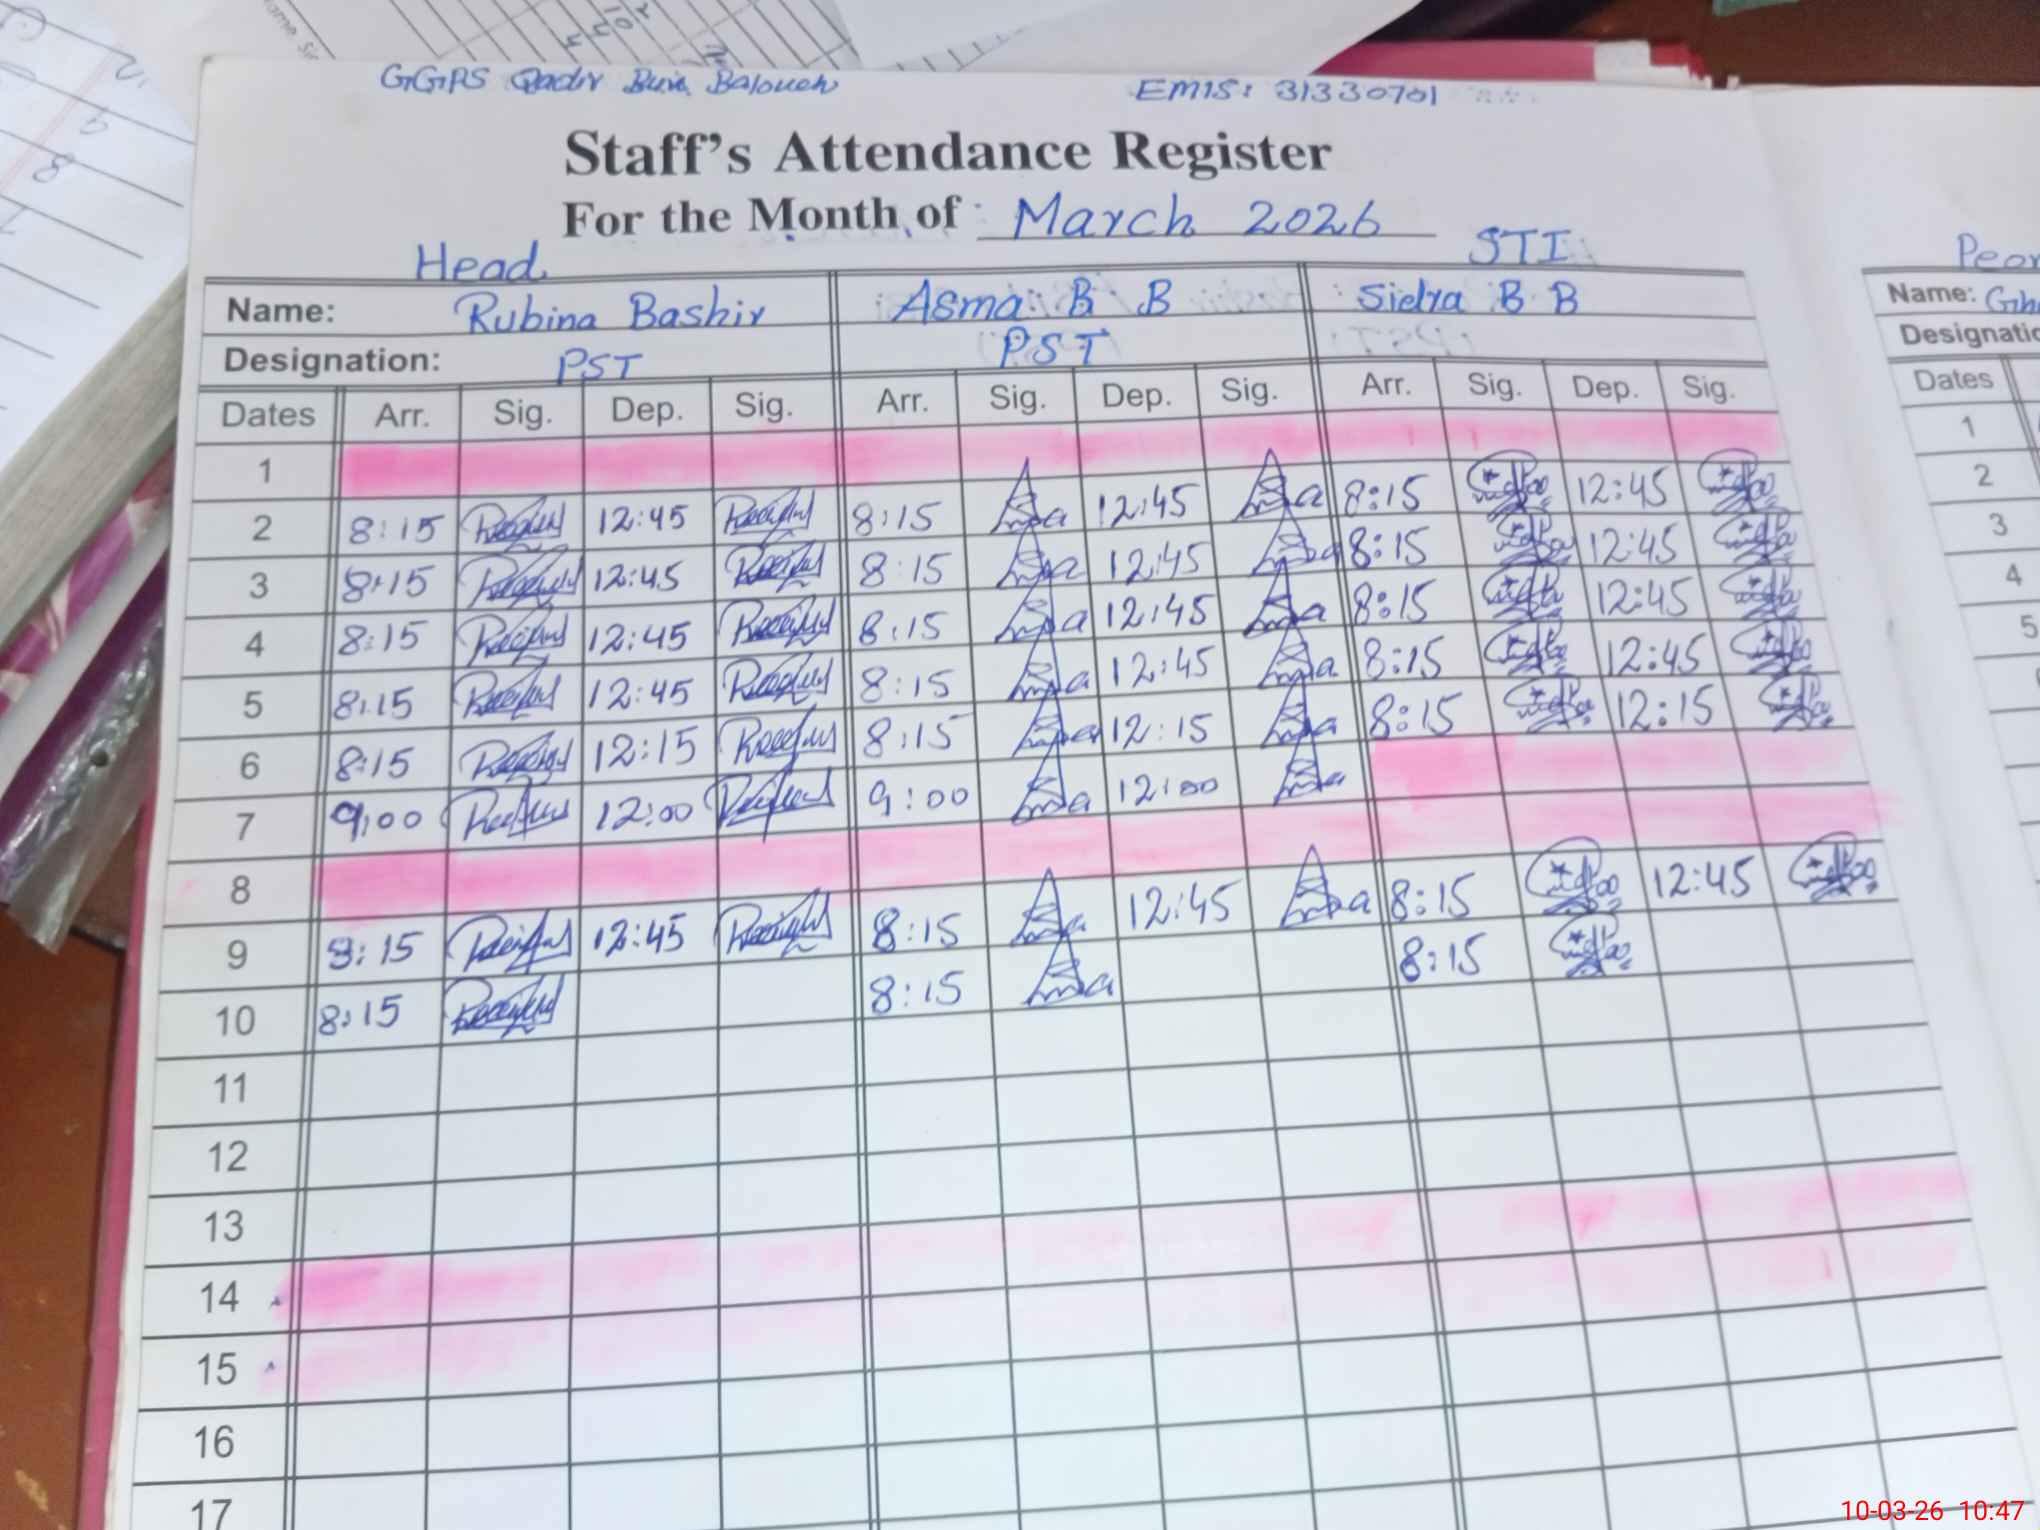 GGPS Qadir Bux Balouch EMIS: 31330701
Staff's Attendance Register
For the Month of March 2026
Head STI
Name: Rubina Bashir Asma B B Sidra B B
Designation: PST PST
Dates Arr. Sig. Dep. Sig. Arr. Sig. Dep. Sig. Arr. Sig. Dep. Sig.
1
2 8:15 12:45 8:15 12:45 8:15 12:45
3 8:15 12:45 8:15 12:45 8:15 12:45
4 8:15 12:45 8:15 12:45 8:15 12:45
5 8:15 12:45 8:15 12:45 8:15 12:45
6 8:15 12:15 8:15 12:15 8:15 12:15
7 9:00 12:00 9:00 12:00
8
9 8:15 12:45 8:15 12:45 8:15 12:45
10 8:15 8:15 8:15
11
12
13
14
15
16
17
Name:
Dates
1
2
3
4
5
10-03-26 10:47